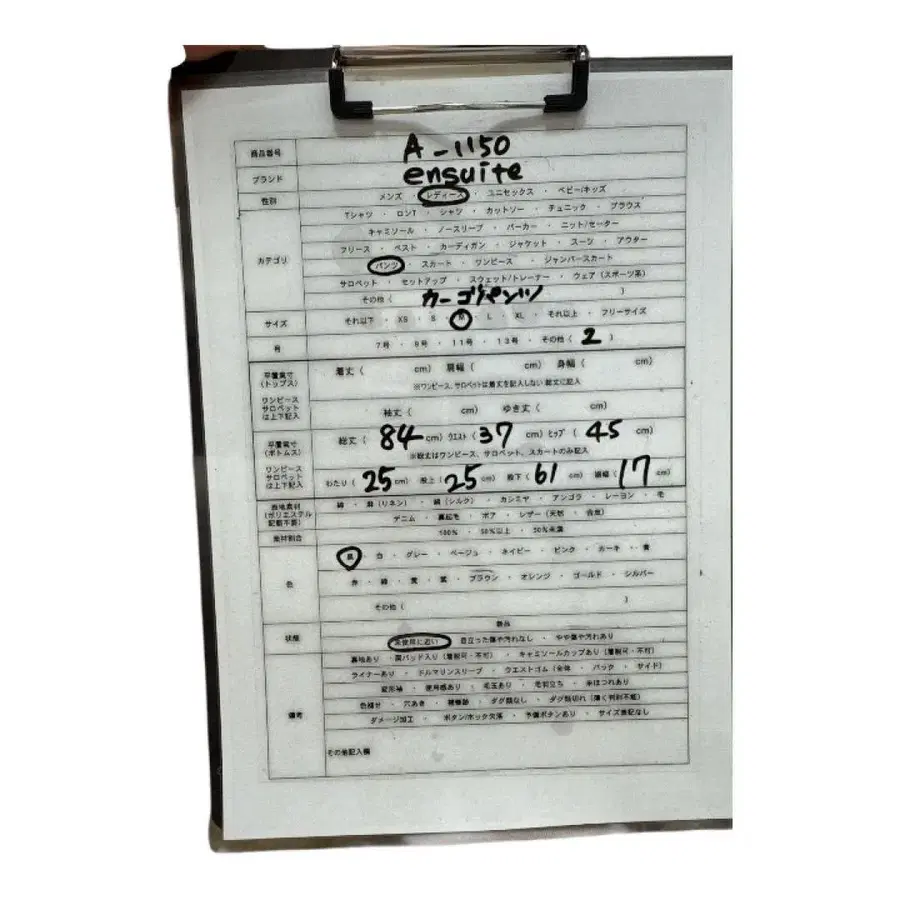 商品番号 A-1150
ブランド ensuite
性別 メンズ ・ レディース ・ ユニセックス ・ ベビー/キッズ
Tシャツ ・ ロンT ・ シャツ ・ カットソー ・ チュニック ・ ブラウス
キャミソール ・ ノースリーブ ・ パーカー ・ ニット/セーター
フリース ・ ベスト ・ カーディガン ・ ジャケット ・ スーツ ・ アウター
カテゴリ パンツ ・ スカート ・ ワンピース ・ ジャンパースカート
サロペット ・ セットアップ ・ スウェット/トレーナー ・ ウェア (スポーツ系)
その他 ( カーゴパンツ )
サイズ それ以下 ・ XS ・ S ・ M ・ L ・ XL ・ それ以上 ・ フリーサイズ
号 7号 ・ 9号 ・ 11号 ・ 13号 ・ その他 ( 2 )
平置実寸 (トップス) 着丈 ( cm) 肩幅 ( cm) 身幅 ( cm)
※ワンピース、サロペットは着丈を記入しない 総丈に記入
ワンピース サロペット は上下記入 袖丈 ( cm) ゆき丈 ( cm)
平置実寸 (ボトムス) 総丈 ( 84 cm) ウエスト ( 37 cm) ヒップ ( 45 cm)
※総丈はワンピース、サロペット、スカートのみ記入
ワンピース サロペット は上下記入 わたり ( 25 cm) 股上 ( 25 cm) 股下 ( 61 cm) 裾幅 ( 17 cm)
生地素材 (ポリエステル 記載不要) 綿 ・ 麻 (リネン) ・ 絹 (シルク) ・ カシミヤ ・ アンゴラ ・ レーヨン ・ 毛
デニム ・ 裏起毛 ・ ボア ・ レザー (天然 ・ 合皮)
素材割合 100% ・ 50%以上 ・ 50%未満
黒 ・ 白 ・ グレー ・ ベージュ ・ ネイビー ・ ピンク ・ カーキ ・ 青
色 赤 ・ 緑 ・ 黄 ・ 紫 ・ ブラウン ・ オレンジ ・ ゴールド ・ シルバー
その他 ( )
新品
状態 未使用に近い ・ 目立った傷や汚れなし ・ やや傷や汚れあり
裏地あり ・ 肩パッド入り (着脱可・不可) ・ キャミソールカップあり (着脱可・不可)
ライナーあり ・ ドルマンスリーブ ・ ウエストゴム (全体 ・ バック ・ サイド)
変形袖 ・ 使用感あり ・ 毛玉あり ・ 毛羽立ち ・ 糸ほつれあり
備考 色褪せ ・ 穴あき ・ 補修跡 ・ タグ類なし ・ タグ類切れ (薄く判別不能)
ダメージ加工 ・ ボタン/ホック欠落 ・ 予備ボタンあり ・ サイズ表記なし
その他記入欄